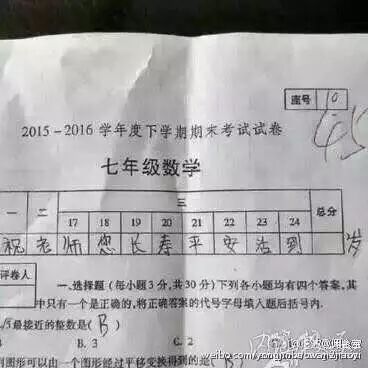 座号 10
45
2015-2016学年度下学期期末考试试卷
七年级数学
一 二 三 总分
17 18 19 20 21 22 23 24
祝 老 师 您 长 寿 平 安 活 到 岁
评卷人
一.选择题(每小题3分,共30分)下列各小题均有四个答案,其
中只有一个是正确的,将正确答案的代号字母填入题后括号内.
最接近的整数是(B)
B. 3 C. 2 D.
图形可以由一个图形经过平移变换得到的是(B)